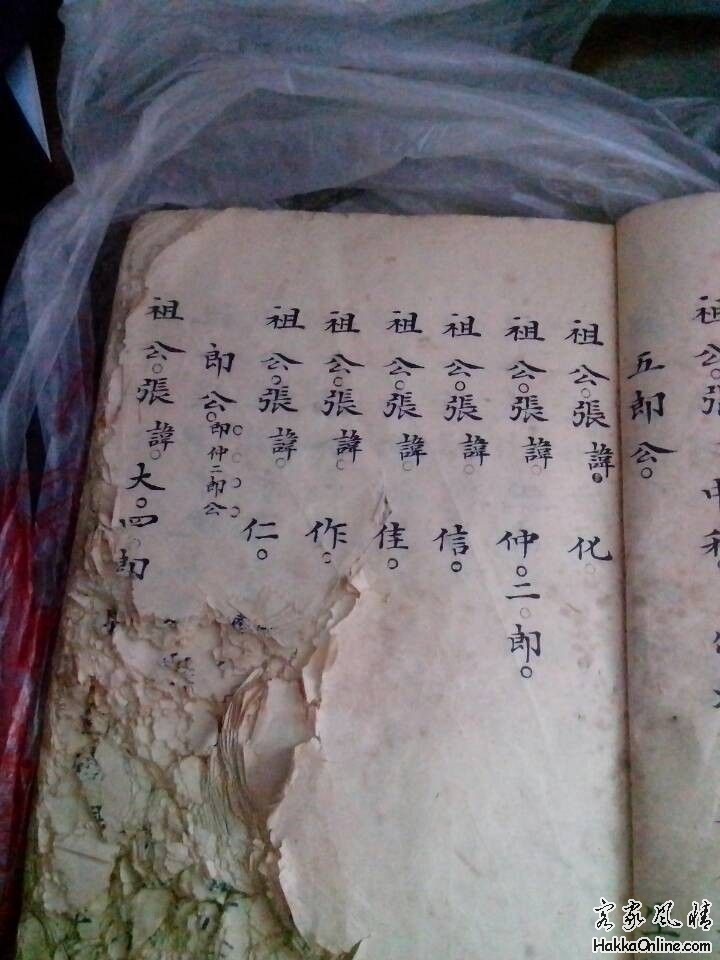 祖公。張
五郎公。
祖公。張諱。化。
祖公。張諱。仲。二。郎。
祖公。張諱。信。
祖公。張諱。佳。
祖公。張諱。作。
祖公。張諱。仁。
郎公。即仲二郎公
祖公。張諱。大。四。郎
客家风情
HakkaOnline.com